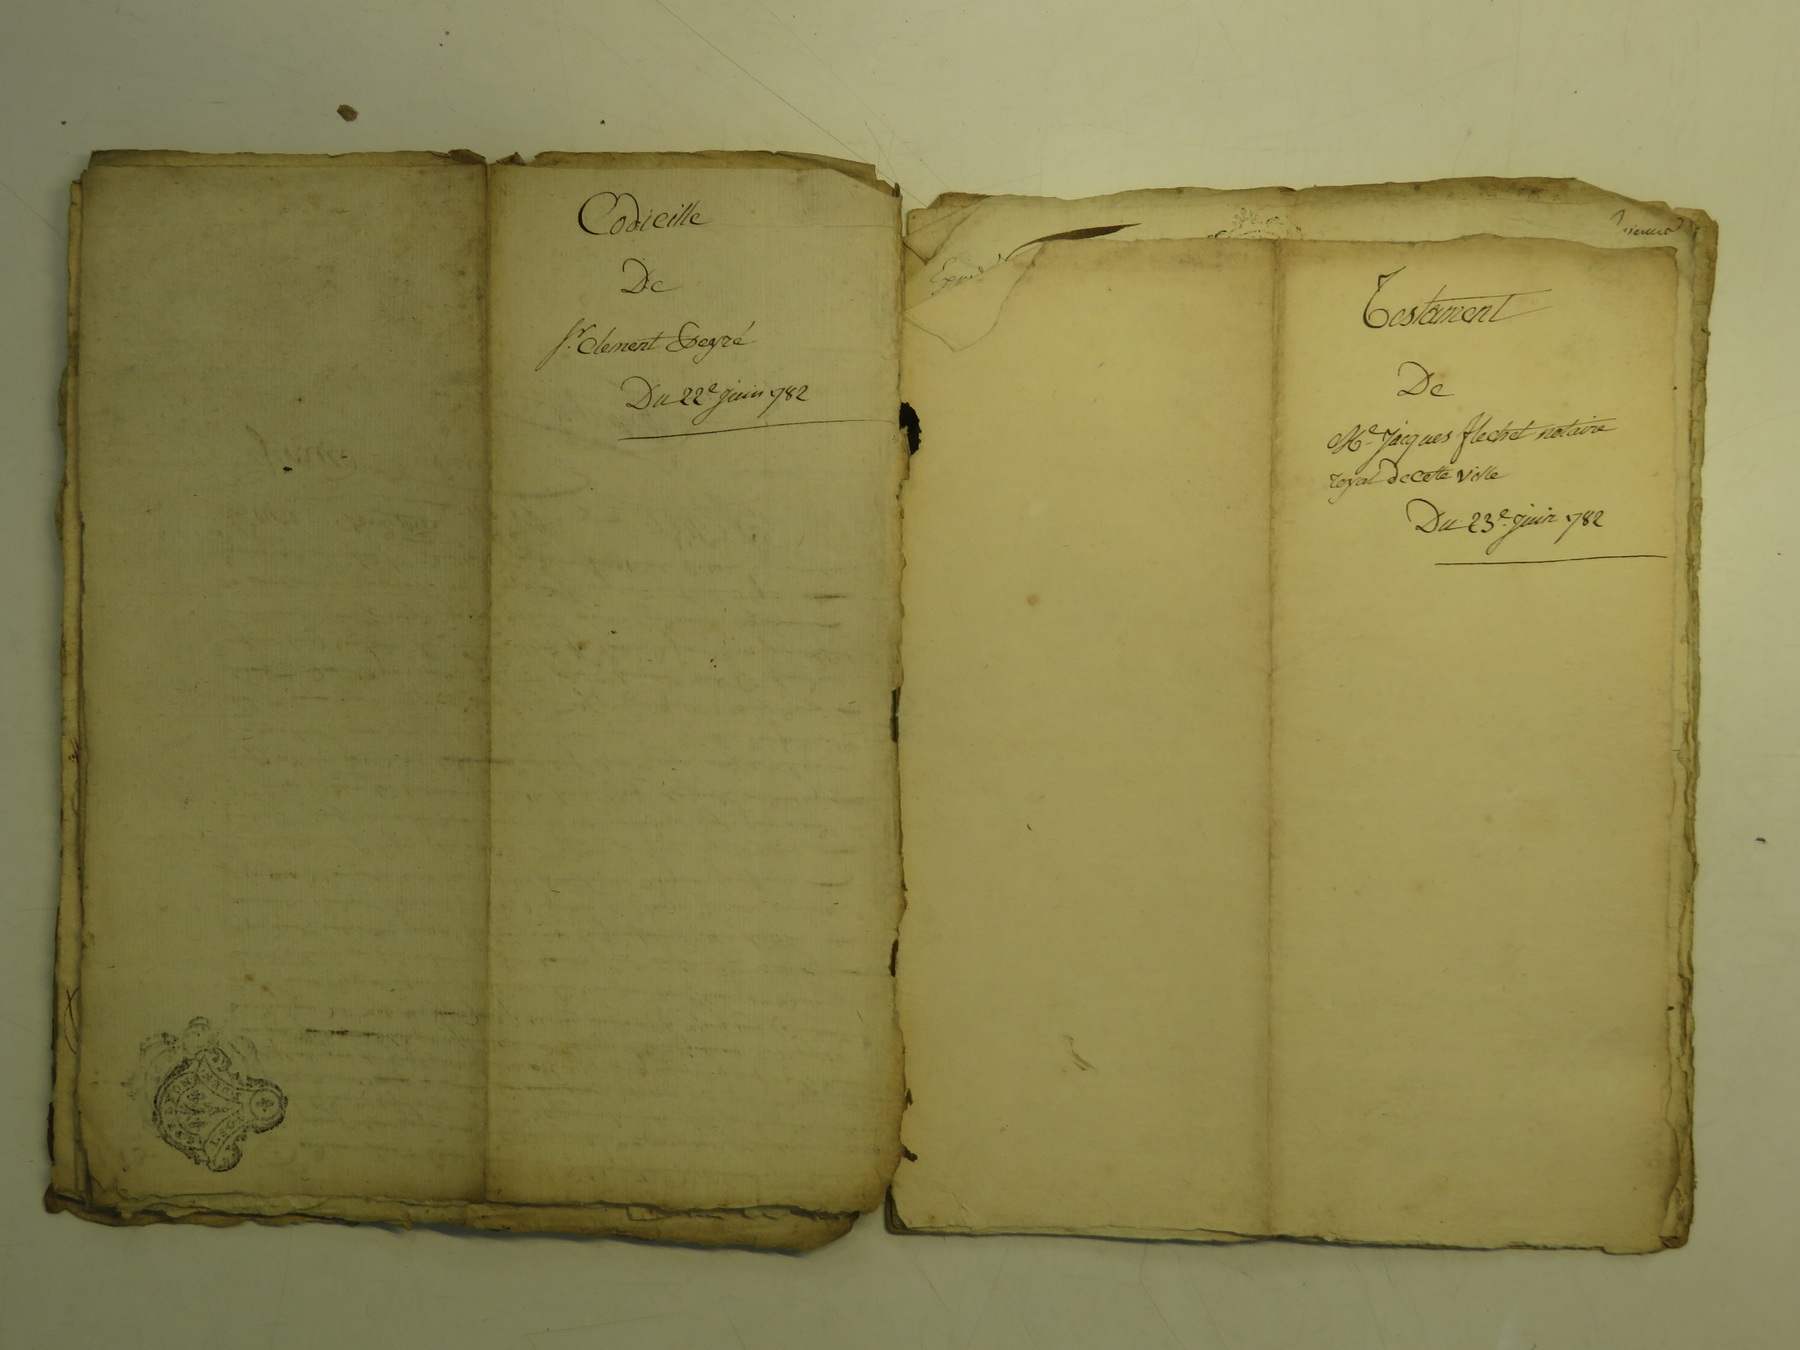 Codicille
De
Sr. Clement Peyré
Du 22e juin 782
Testament
De
Me. Jacques flechet notaire
royal de cette ville
Du 23e juin 782